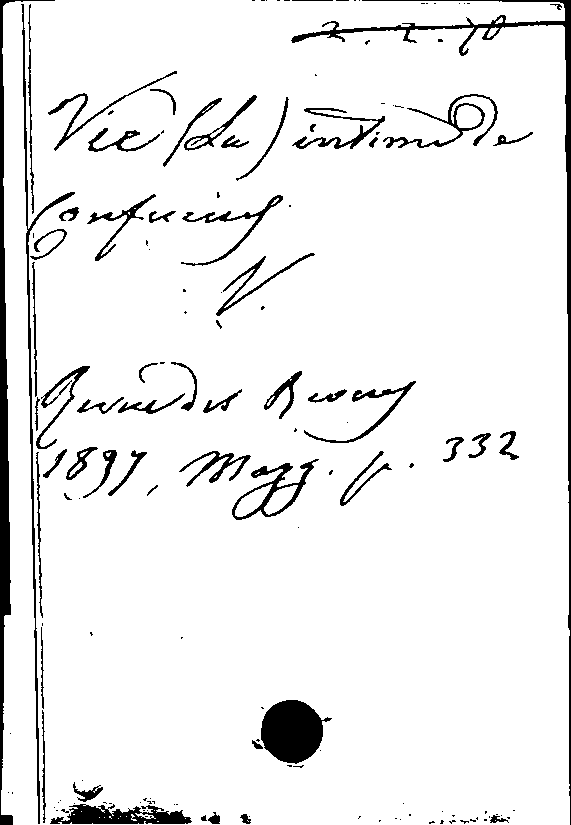 2.2.70
Vie (La) intime de
Confucius
V.
Revue des Revues
1897, Magg. p. 332